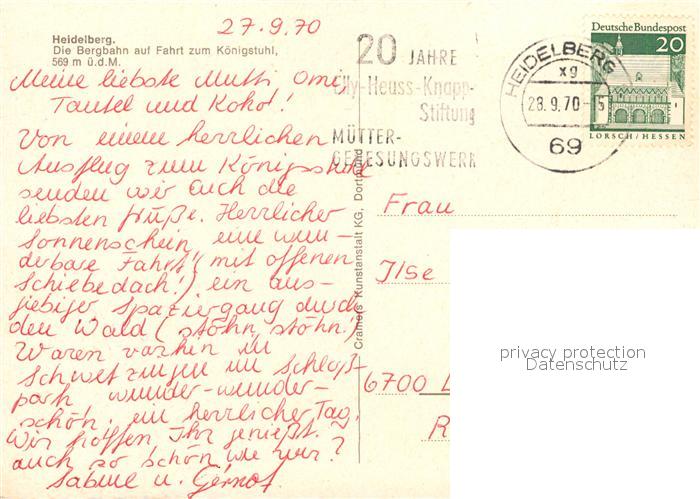 27.9.70
Heidelberg.
Die Bergbahn auf Fahrt zum Königstuhl,
569 m ü.d.M.
Meine liebste Mutti, Omi,
Tantel und Koko!
Von einem herrlichen
Ausflug zum Königsstuhl
senden wir Euch die
liebsten Grüße. Herrlicher
Sonnenschein, eine wun-
derbare Fahrt (mit offenen
Schiebedach!) ein aus-
giebiger Spaziergang durch
den Wald (stöhn, stöhn!)
Waren vorhin im
Schwetzingen im Schloß-
park wunder-wunder-
schön, ein herrlicher Tag.
Wir hoffen Ihr genießt
auch so schön wie wir?
Sabine u. Gernot.
20 JAHRE
Elly-Heuss-Knapp-
Stiftung
MÜTTER-
GENESUNGSWERK
HEIDELBERG
xg
28.9.70-15
69
Deutsche Bundespost
20
LORSCH/HESSEN
Cramers Kunstanstalt KG, Dortmund
Frau
Ilse
6700 L
R
privacy protection
Datenschutz